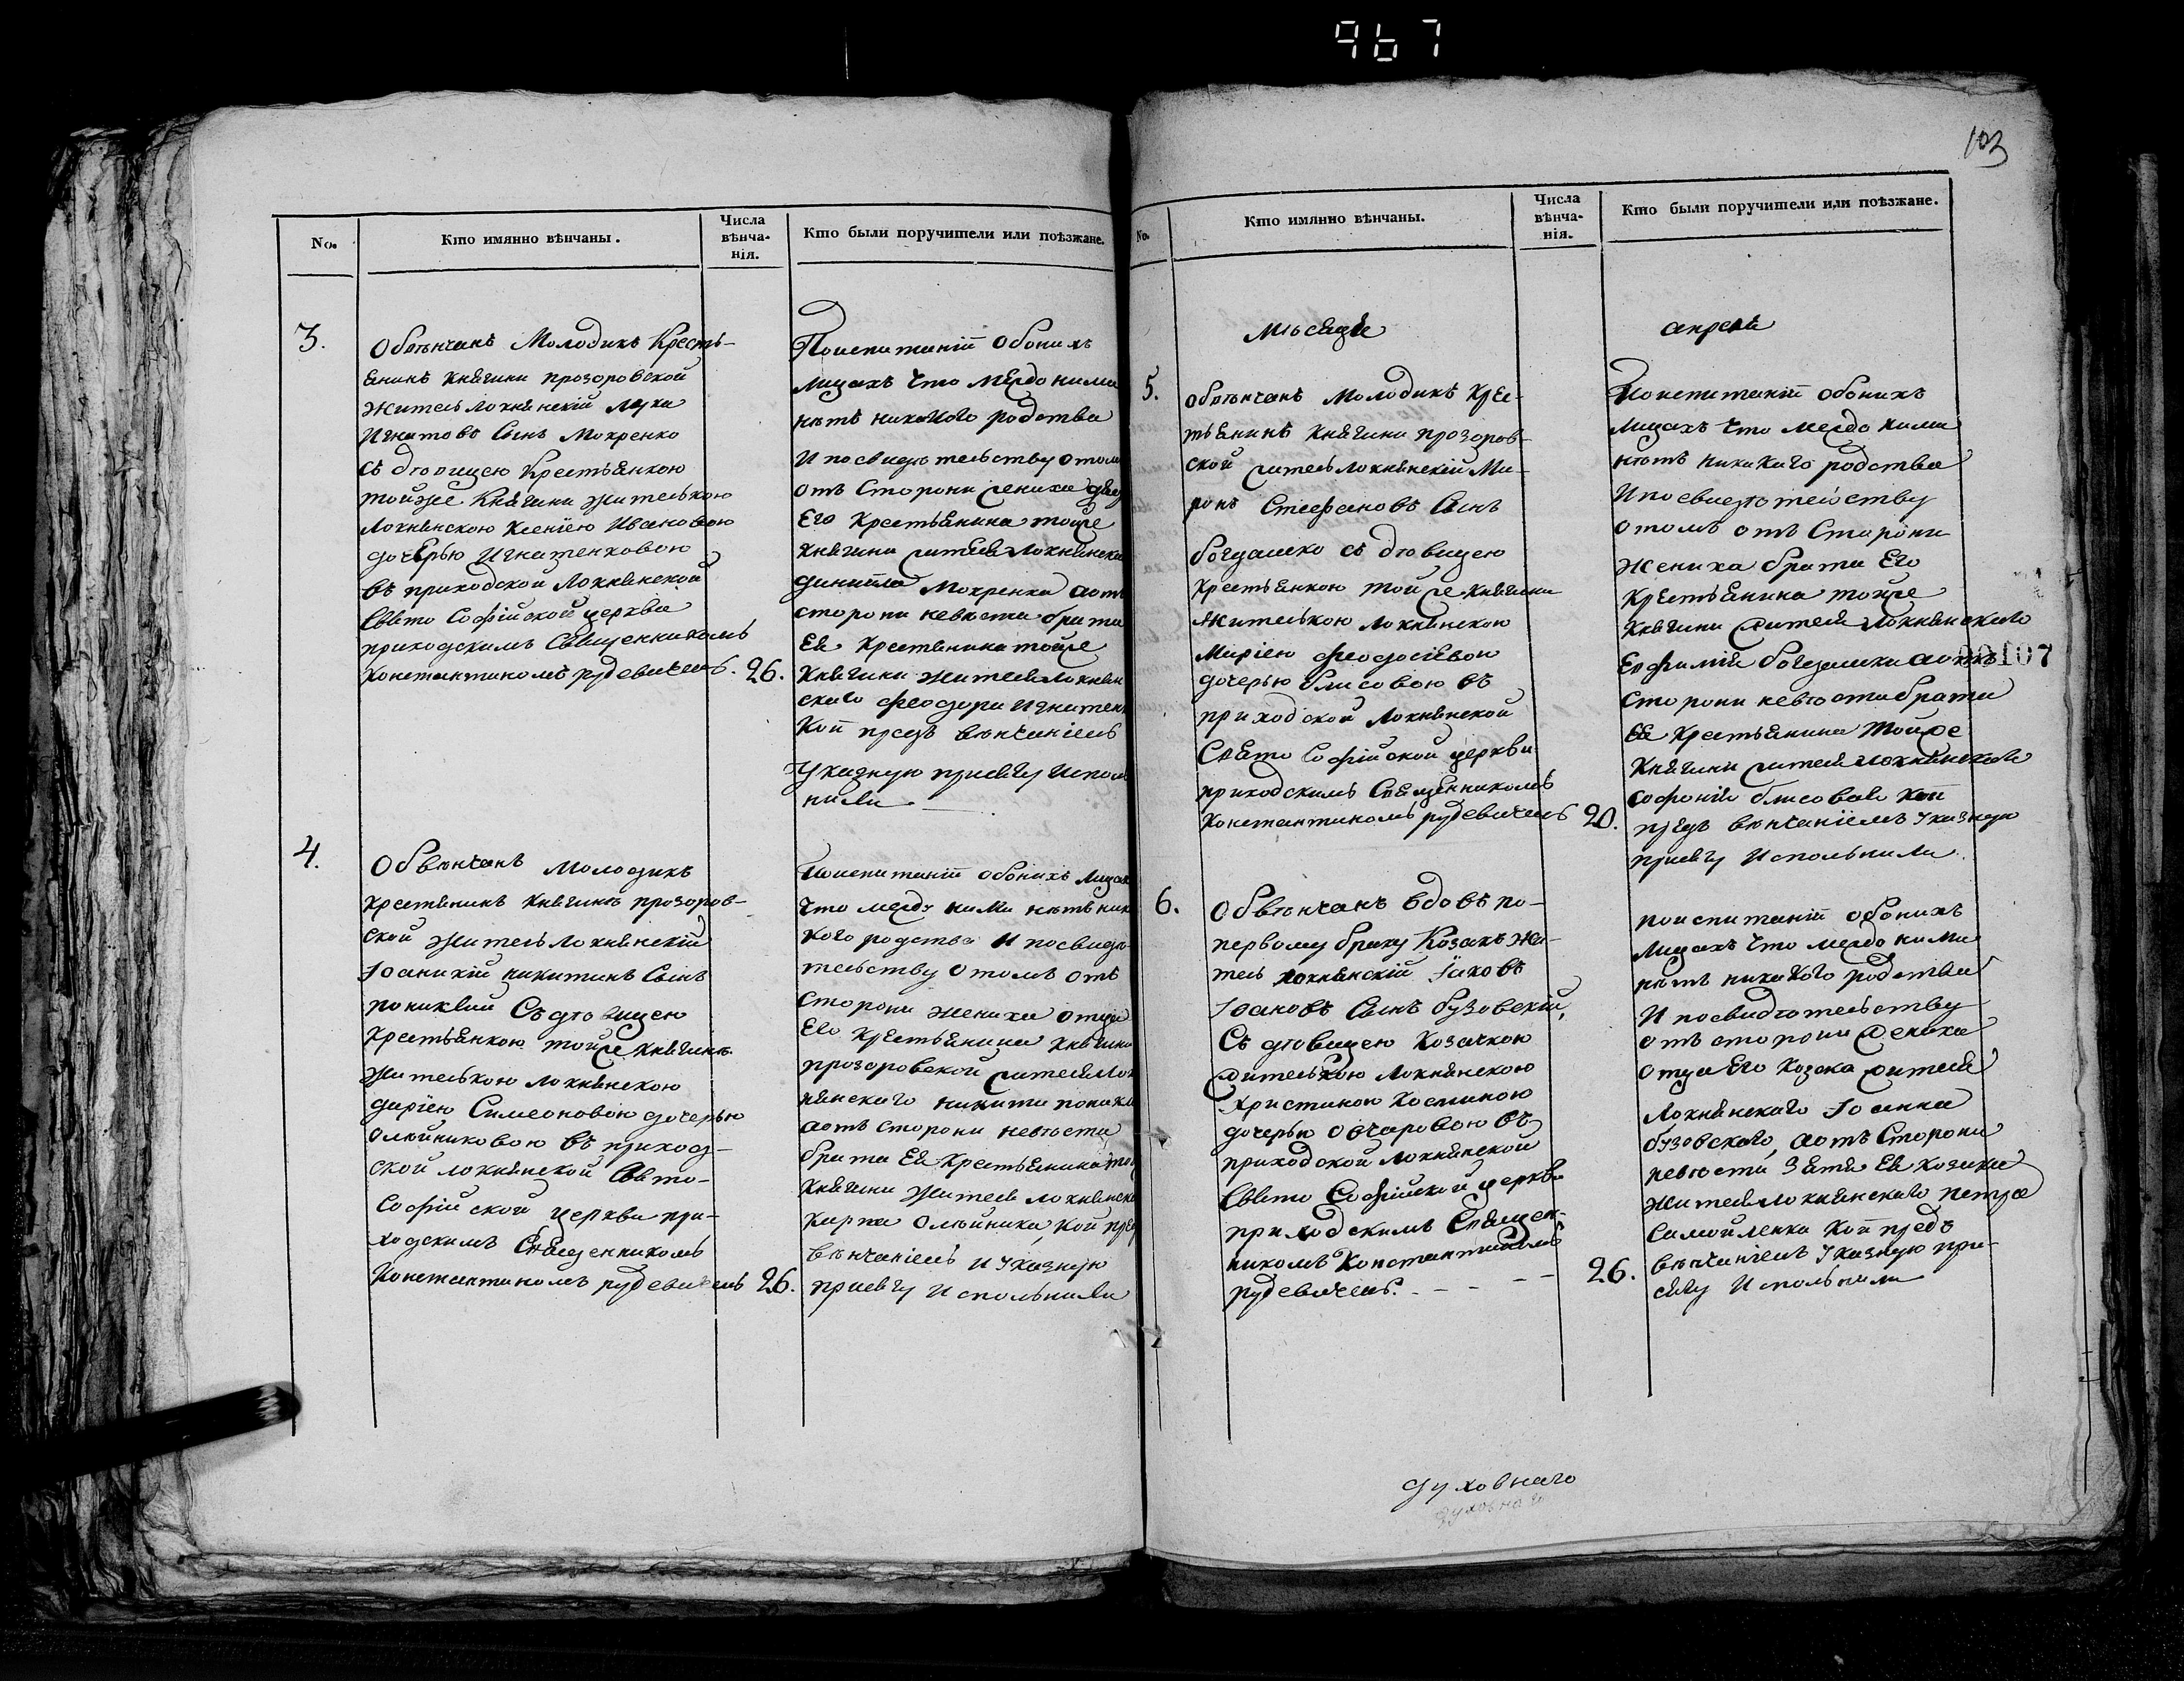 967
103
No.
Кто имянно вѣнчаны.
Числа
вѣнча-
нія.
Кто были поручители или поѣзжане.
3.
Обвѣнчанъ Молодикъ Кресть-
янинъ Княгини прозоровской
Житель Локнянскій Лука
Игнатовъ Сынъ Мокренко
Съ дѣвицею Крестьянкою
тойже Княгини жителькою
Локнянскою Ксенїею Ивановою
дочерью Игнатенковою
въ приходской Локнянской
Свято Софійской церкви
приходскимъ Священникомъ
Константиномъ рудевичемъ.
26.
Поиспитаніи Обоихъ
Лицахъ Что Междо ними
нѣтъ никакого родства
И посвидѣтельству Отом
отъ Сторони жениха
Его Крестьянина тойже
Княгини жителя Локнянска
Даниила Мокренка аотъ
сторони невѣсти брата
Ея Крестянина тойже
Княгини жителя Локнян
скаго феодора Игнатен
Кои предъ вѣнчаніемъ
Указную присягу Исполь
нили
4.
Обвѣнчанъ молодикъ
крестянинъ Княгинѣ прозоров-
ской житель Локнянскій
Іоаникій никитинъ Сынъ
Съ дѣвицею
Крестьянкою тойже Княгинѣ
жителькою Локнянскою
дарїею Симеоновою дочерью
Олѣйниковою въ приход-
ской локнянской Свято-
Софійской церкви при-
ходскимъ Священникомъ
Константиномъ рудевичемъ
26.
Поиспитаніи обоихъ Лицах
Что межд ними нѣтъ ника
кого родства И посвидѣ
тельству Отомъ отъ
Сторони жениха отца
Его Крестьянина Княгини
прозоровской жителя Лок
нянскаго никити
аотъ Сторони невѣсти
брата Ея Крестьянина той
Княгини жителя локнянска
карпа Олѣйника, кои пред
вѣнчаніемъ и Указную
присягу Исполънили
No.
Кто имянно вѣнчаны.
Числа
вѣнча-
нія.
Кто были поручители или поѣзжане.
Мѣсяца
апреля
5.
обвѣнчанъ Молодикъ Кре-
тьянинъ Княгини прозоров-
ской житель Локнянскій Ми-
ронъ Стефановъ Сынъ
богдашко съ дѣвицею
Крестьянкою тойже Княгини
Жителькою Локнянскою
Марїею феодосїевою
дочерью блисовою въ
приходской Локнянской
Свято Софійской церкви
приходскимъ Священникомъ
Константиномъ рудевичемъ
20.
Поиспитаніи обоихъ
лицахъ Что междо ними
нѣтъ никакаго родства
Ипосвидѣтельству
отомъ отъ Сторони
жениха брата Его
Крестьянина тойже
Княгини жителя Локнянскаго
Ефимія богдашка аотъ
сторони невѣсти брата
Ея Крестьянина тойже
Княгини жителя локнянскаго
софонія блисоваго кои
предъ вѣнчаніемъ Указную
присягу Исполънили.
00107
6.
Обвѣнчанъ вдовъ по-
первому браку Козакъ жи-
тель локнянскій Іаковъ
Іоановъ Сынъ бузовскій,
Съ дѣвицею Козачкою
жителькою Локнянскою
Христиною Космїною
дочерью Овчаровою въ
приходской Локнянской
Свято Софійской церкви
приходскимъ Священ-
никомъ Константиномъ
рудевичемъ.
26.
поиспитаніи обоихъ
Лицахъ что междо ними
нѣтъ никакого родства
И посвидѣтельству
отъ сторони жениха
отца Его Козака жителя
Локнянскаго Іоанна
бузовскаго, аотъ Сторони
невѣсти Зятя Ея козака
жителя локнянскаго петра
Самойленка кои предъ
вѣнчаніемъ Указную при-
сягу Исполънили
духовнаго
духовнаго